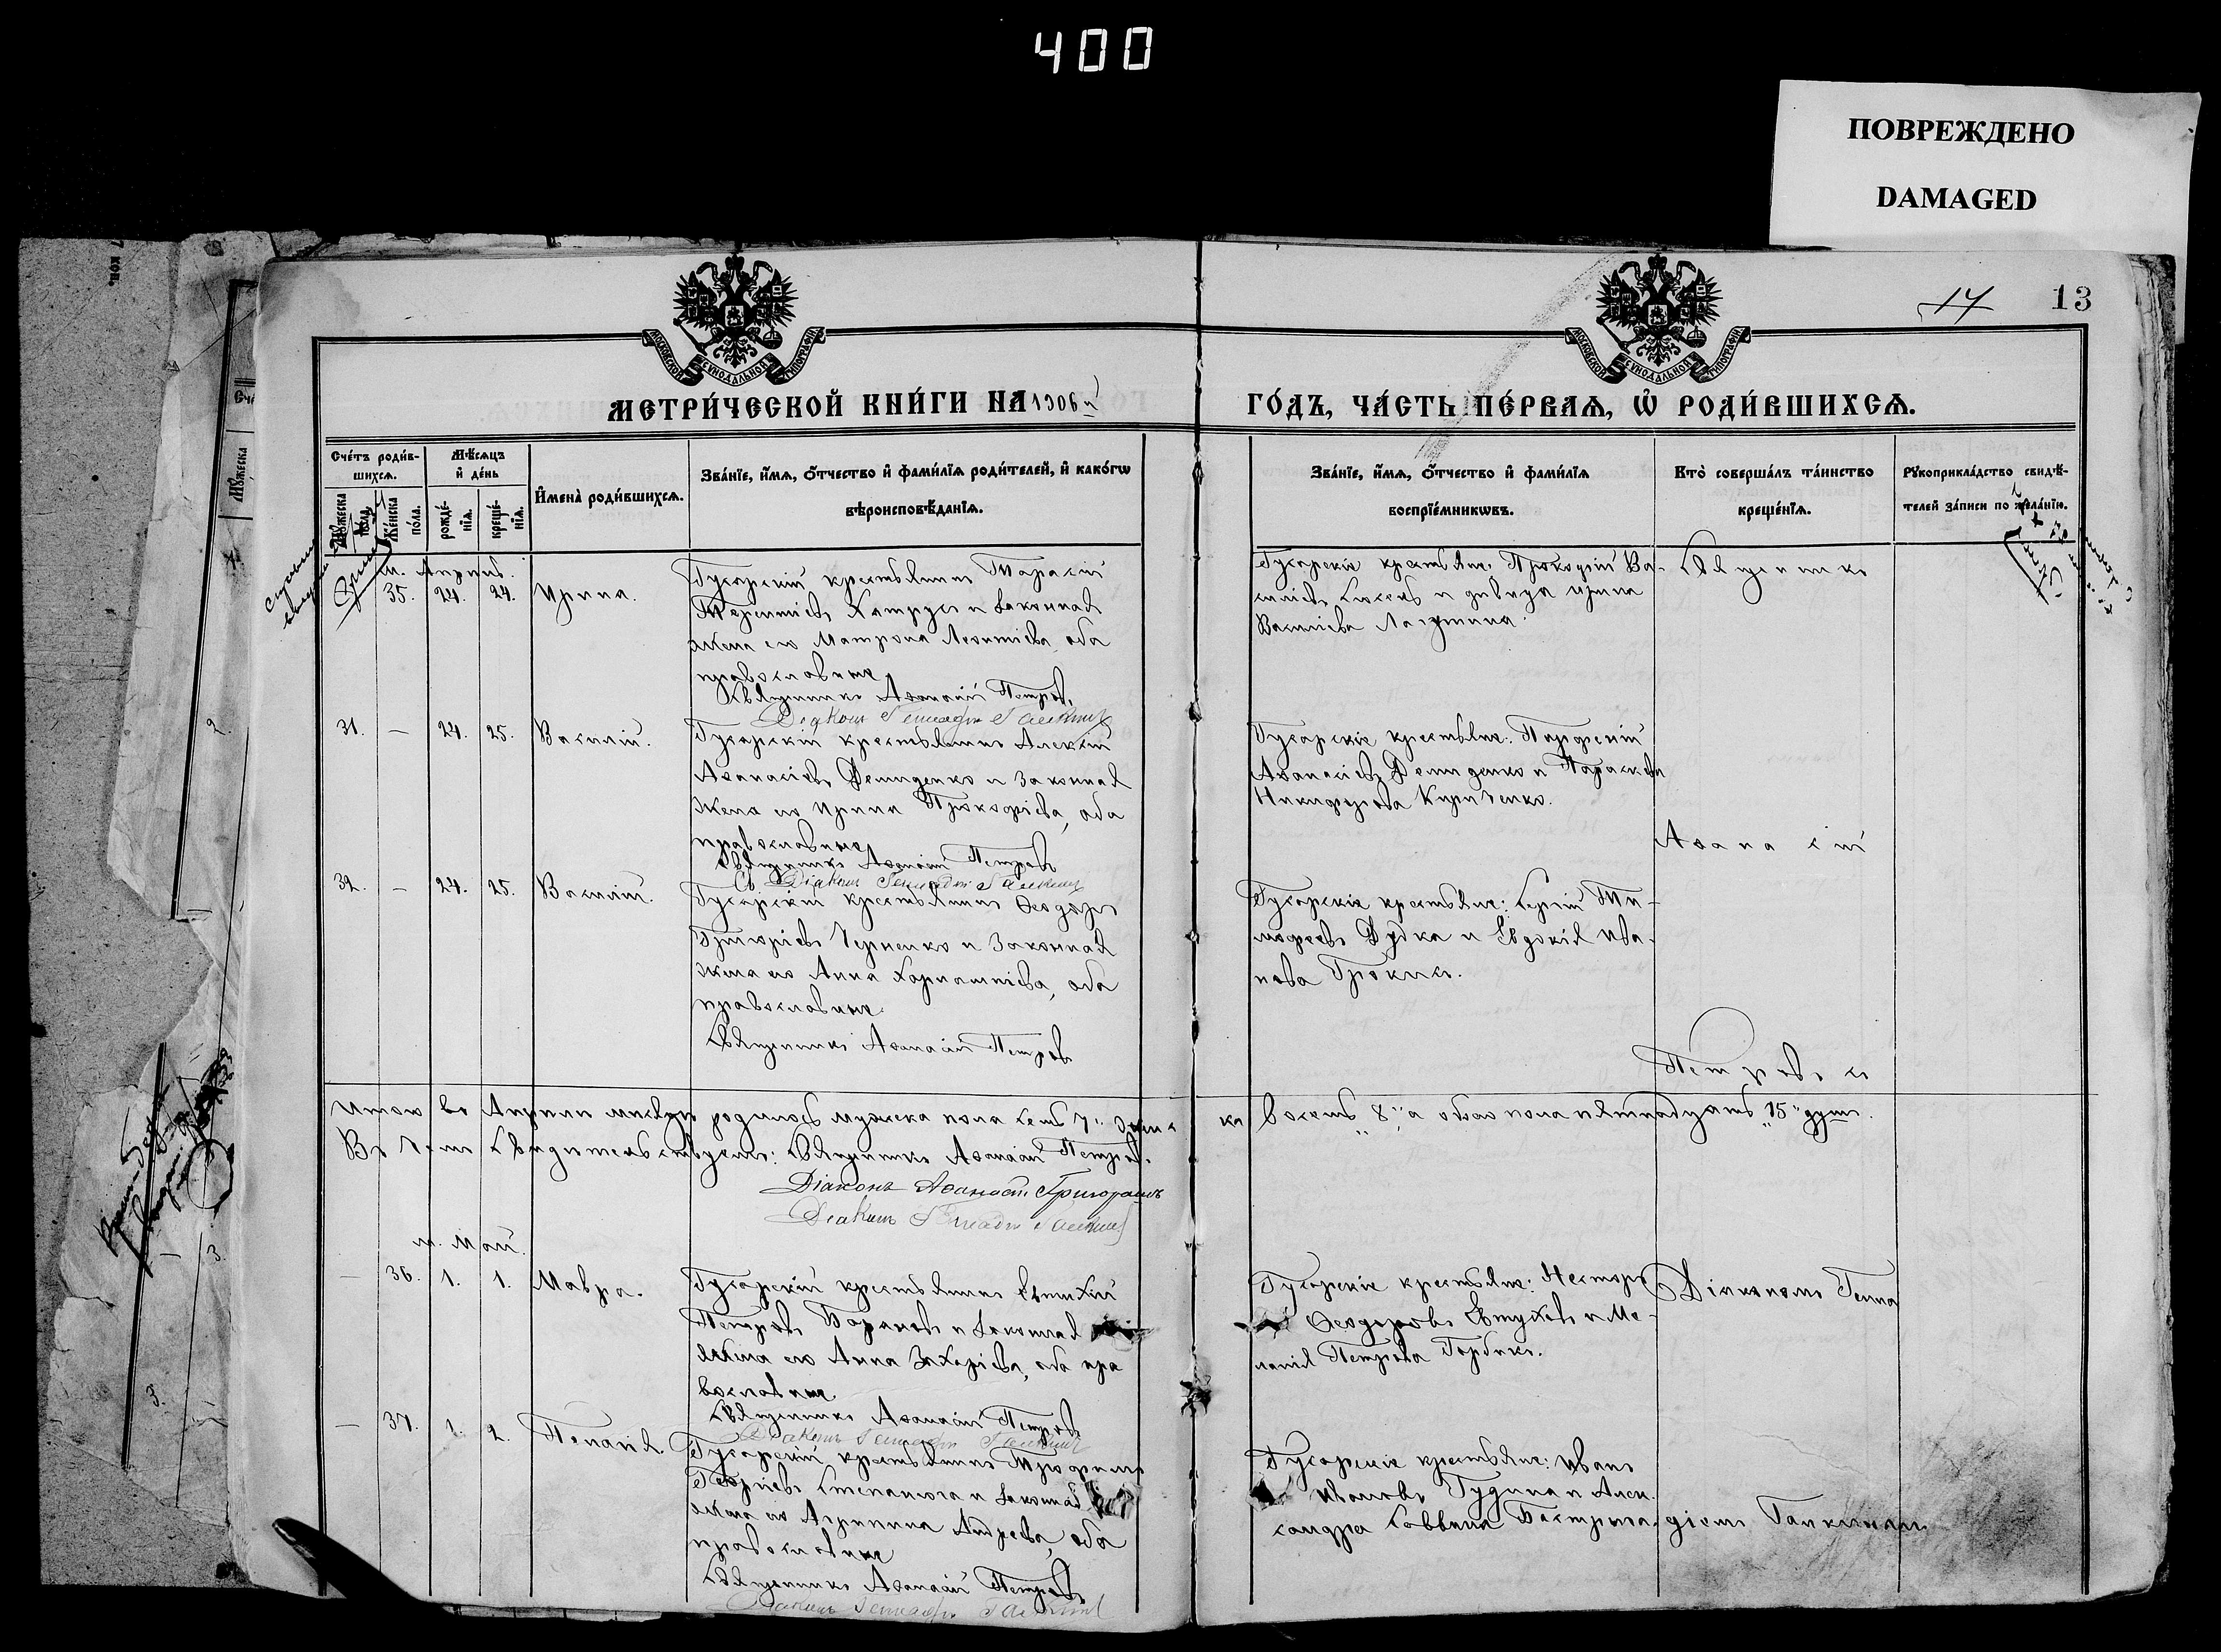 400
ПОВРЕЖДЕНО
DAMAGED
14 13
МОСКОВСКОЙ СѴНОДАЛЬНОЙ ТИПОГРАФІИ
МОСКОВСКОЙ СѴНОДАЛЬНОЙ ТИПОГРАФІИ
МЕТРИ́ЧЕСКОЙ КНИ́ГИ НА 1906 й
ГО́ДЪ, ЧА́СТЬ ПЕ́РВАѦ, Ѡ҆ РОДИ́ВШИХСѦ.
Сче́тъ роди́в-
шихсѧ.
Мꙋ́жеска по́ла.
Же́нска по́ла.
Мѣ́сѧцъ
и҆ де́нь
рожде́-
нїѧ.
креще́-
нїѧ.
И҆мена̀ роди́вшихсѧ.
Зва́нїе, и҆́мѧ, ѻ҆́тчество и҆ фами́лїѧ роди́телей, и҆ како́гѡ
вѣроисповѣ́данїѧ.
Зва́нїе, и҆́мѧ, ѻ҆́тчество и҆ фами́лїѧ
воспрїе́мникѡвъ.
Кто̀ соверша́лъ та́инство
креще́нїѧ.
Рꙋкоприкла́дство свидѣ́-
телей за́писи по жела́нїю.
м. Апрель.
35. 24. 24. Ирина.
Гусарскій крестьянинъ Тарасій
Терентіевъ и законная
жена его Матрона Леонтіева, оба
православные
Священникъ Аѳанасій Петровъ
Діаконъ Геннадій Галкинъ
Гусарскіе крестьяне: Прокофій Ва-
силіевъ и дѣвица Ирина
Василіева
Священникъ
31. — 24. 25. Василій.
Гусарскій крестьянинъ Алексій
Аѳанасіевъ Демиденко и законная
жена его Ирина Прокофіева, оба
православные
Священникъ Аѳанасій Петровъ
Діаконъ Геннадій Галкинъ
Гусарскіе крестьяне: Парфеній
Аѳанасіевъ Демиденко и Параскева
Никифорова Кириченко.
Аѳанасій
32. — 24. 25. Василій.
Гусарскій крестьянинъ Ѳеодоръ
Григоріевъ Черненко и законная
жена его Анна Харлампіева, оба
православные.
Священникъ Аѳанасій Петровъ
Гусарскіе крестьяне: Сергій Ти-
мофеевъ Дудка и Евдокія Ива-
нова
Петровъ съ
Итого въ Апрѣлѣ мѣсяцѣ родилось мужеска пола семь "7" женс
ка восемь "8" а обоего пола пятнадцать "15" душъ.
Въ чемъ свидѣтельствуемъ: Священникъ Аѳанасій Петровъ.
Діаконъ Аѳанасій Григорашъ
Діаконъ Геннадій Галкинъ
м. Май.
— 36. 1. 1. Мавра.
Гусарскій крестьянинъ Евтихій
Петровъ Барановъ и законная
жена его Анна Захаріева, оба пра
вославные.
Священникъ Аѳанасій Петровъ
Діаконъ Геннадій Галкинъ
Гусарскіе крестьяне: Несторъ
Ѳеодоровъ Евтуховъ и Ме-
ланія Петрова Горбикъ.
Діакономъ Генна
— 37. 1. 2. Пелагія.
Гусарскій крестьянинъ Трофимъ
Георгіевъ и законная
жена его Агрипина Андреева, оба
православные
Священникъ Аѳанасій Петровъ
Діаконъ Геннадій Галкинъ
Гусарскіе крестьяне: Иванъ
Ивановъ Гудина и Алек-
сандра Саввина
діемъ Галкинымъ